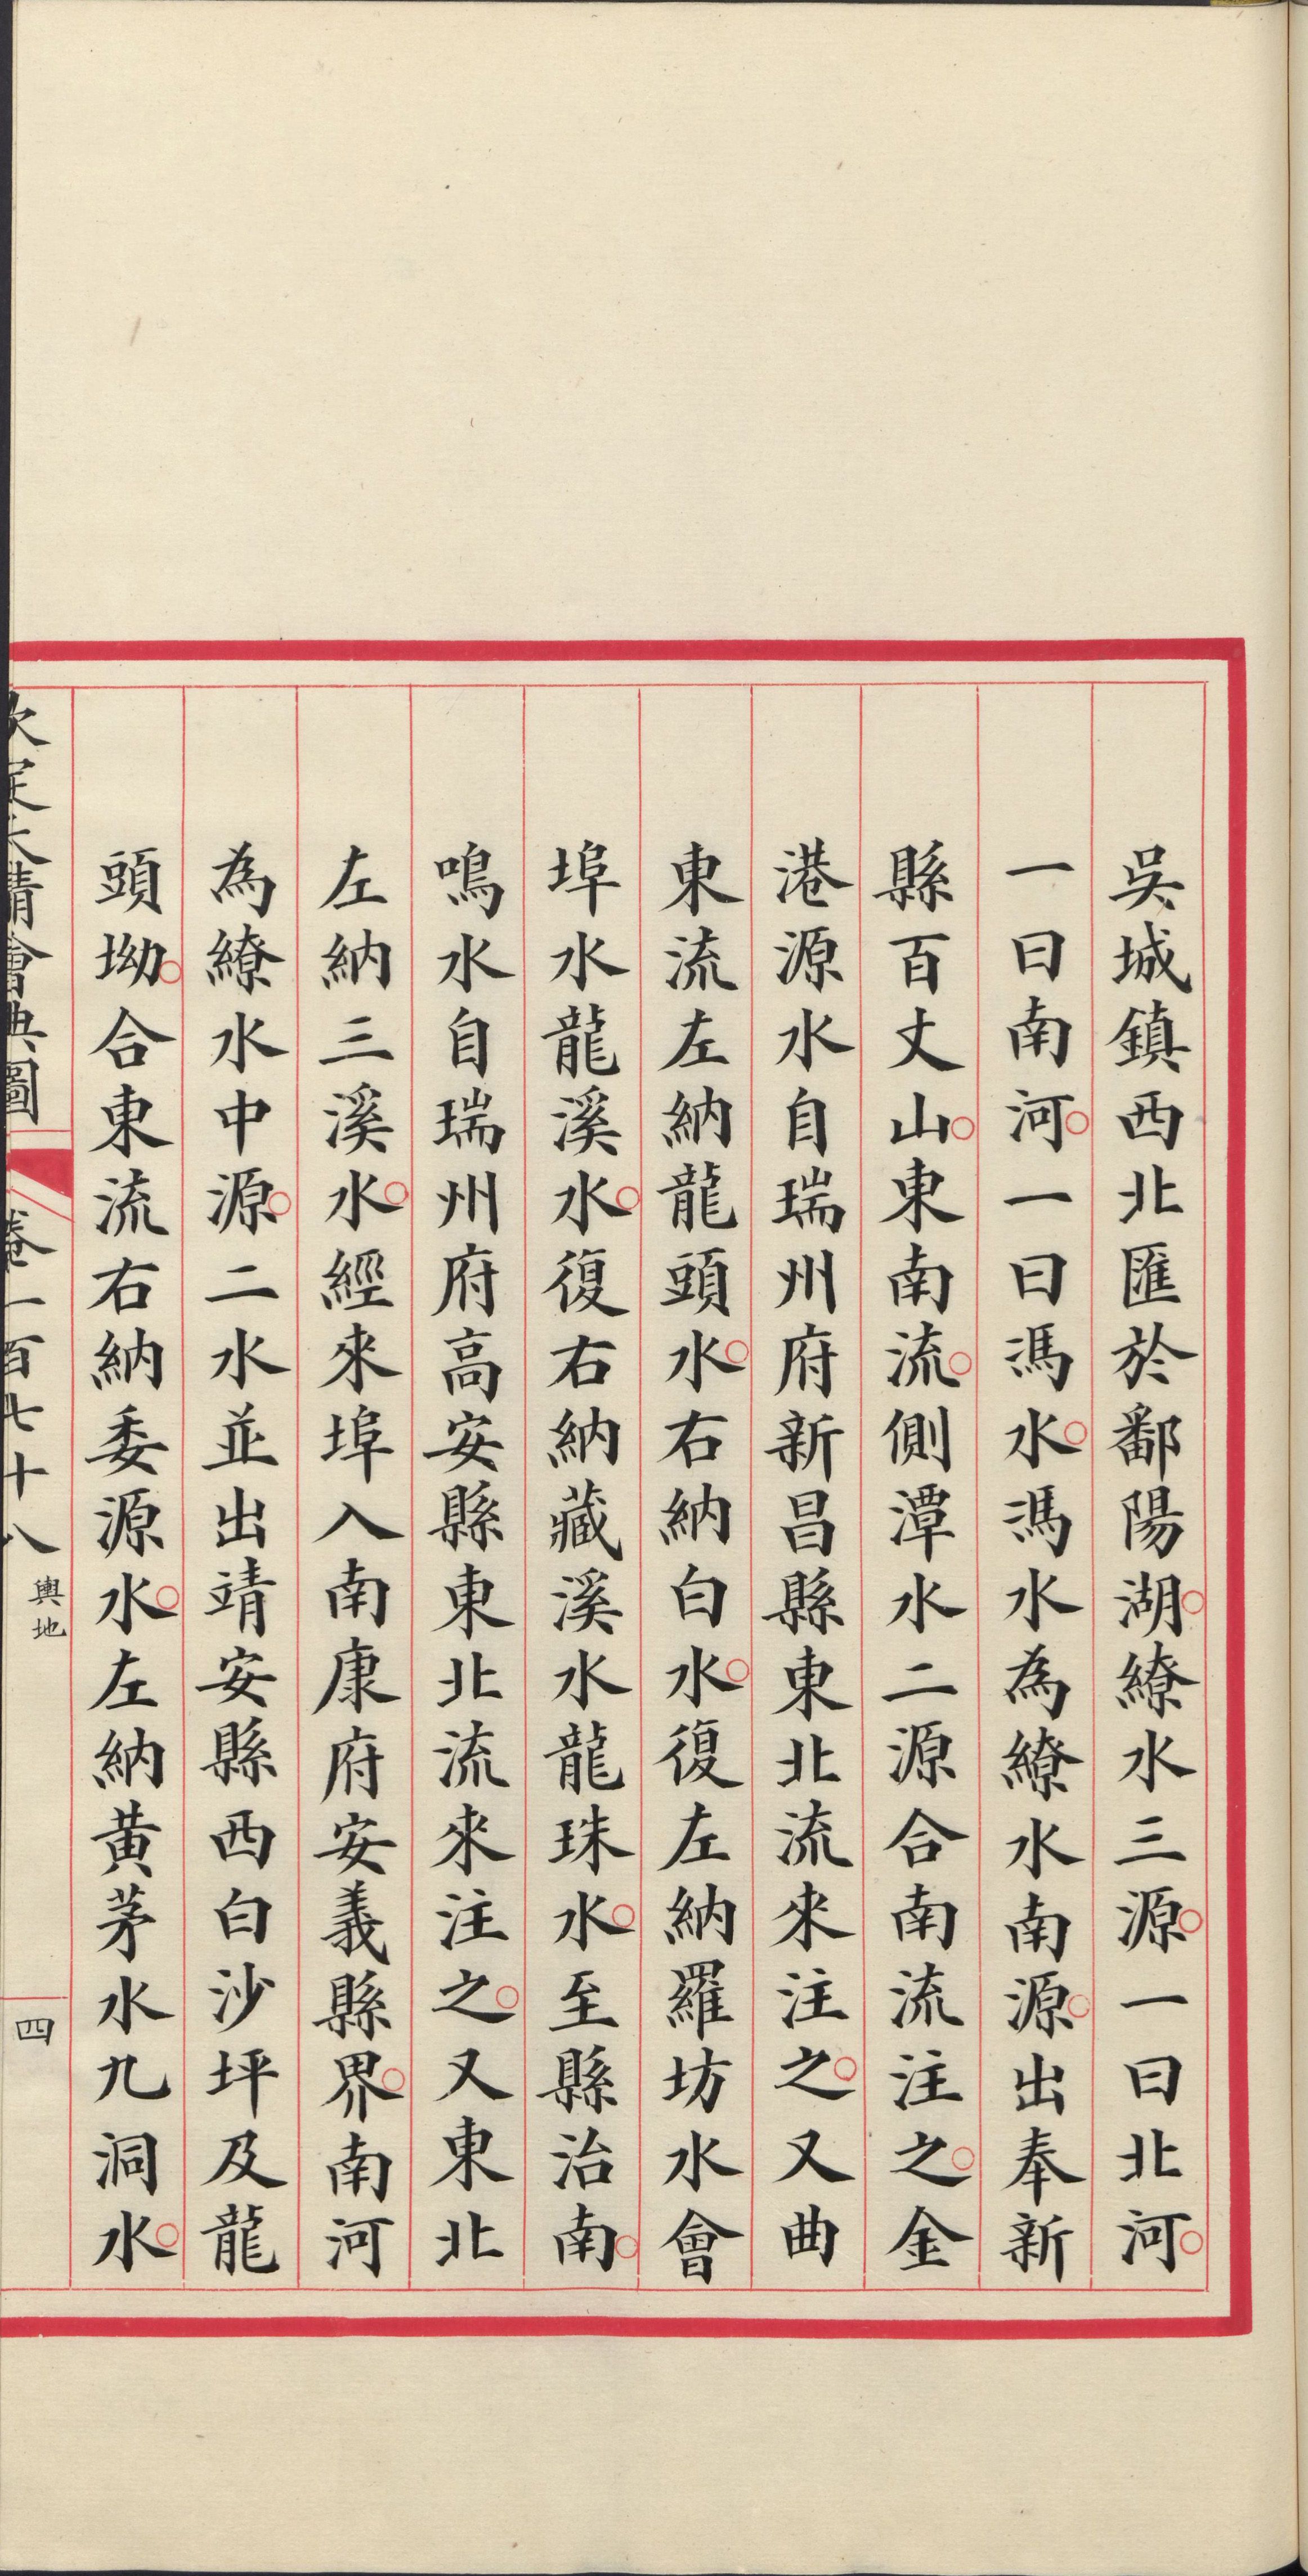 吳城鎮西北匯於鄱陽湖○繚水三源○一曰北河○
一曰南河○一曰馮水○馮水為繚水南源○出奉新
縣百丈山○東南流○側潭水二源合南流注之○金
港源水自瑞州府新昌縣東北流來注之○又曲
東流左納龍頭水○右納白水○復左納羅坊水會
埠水龍溪水○復右納藏溪水龍珠水○至縣治南○
鳴水自瑞州府高安縣東北流來注之○又東北
左納三溪水○經來埠入南康府安義縣界○南河
為繚水中源○二水並出靖安縣西白沙坪及龍
頭坳○合東流右納委源水○左納黃茅水九洞水○
欽定大清會典圖 卷一百七十八 輿地 四